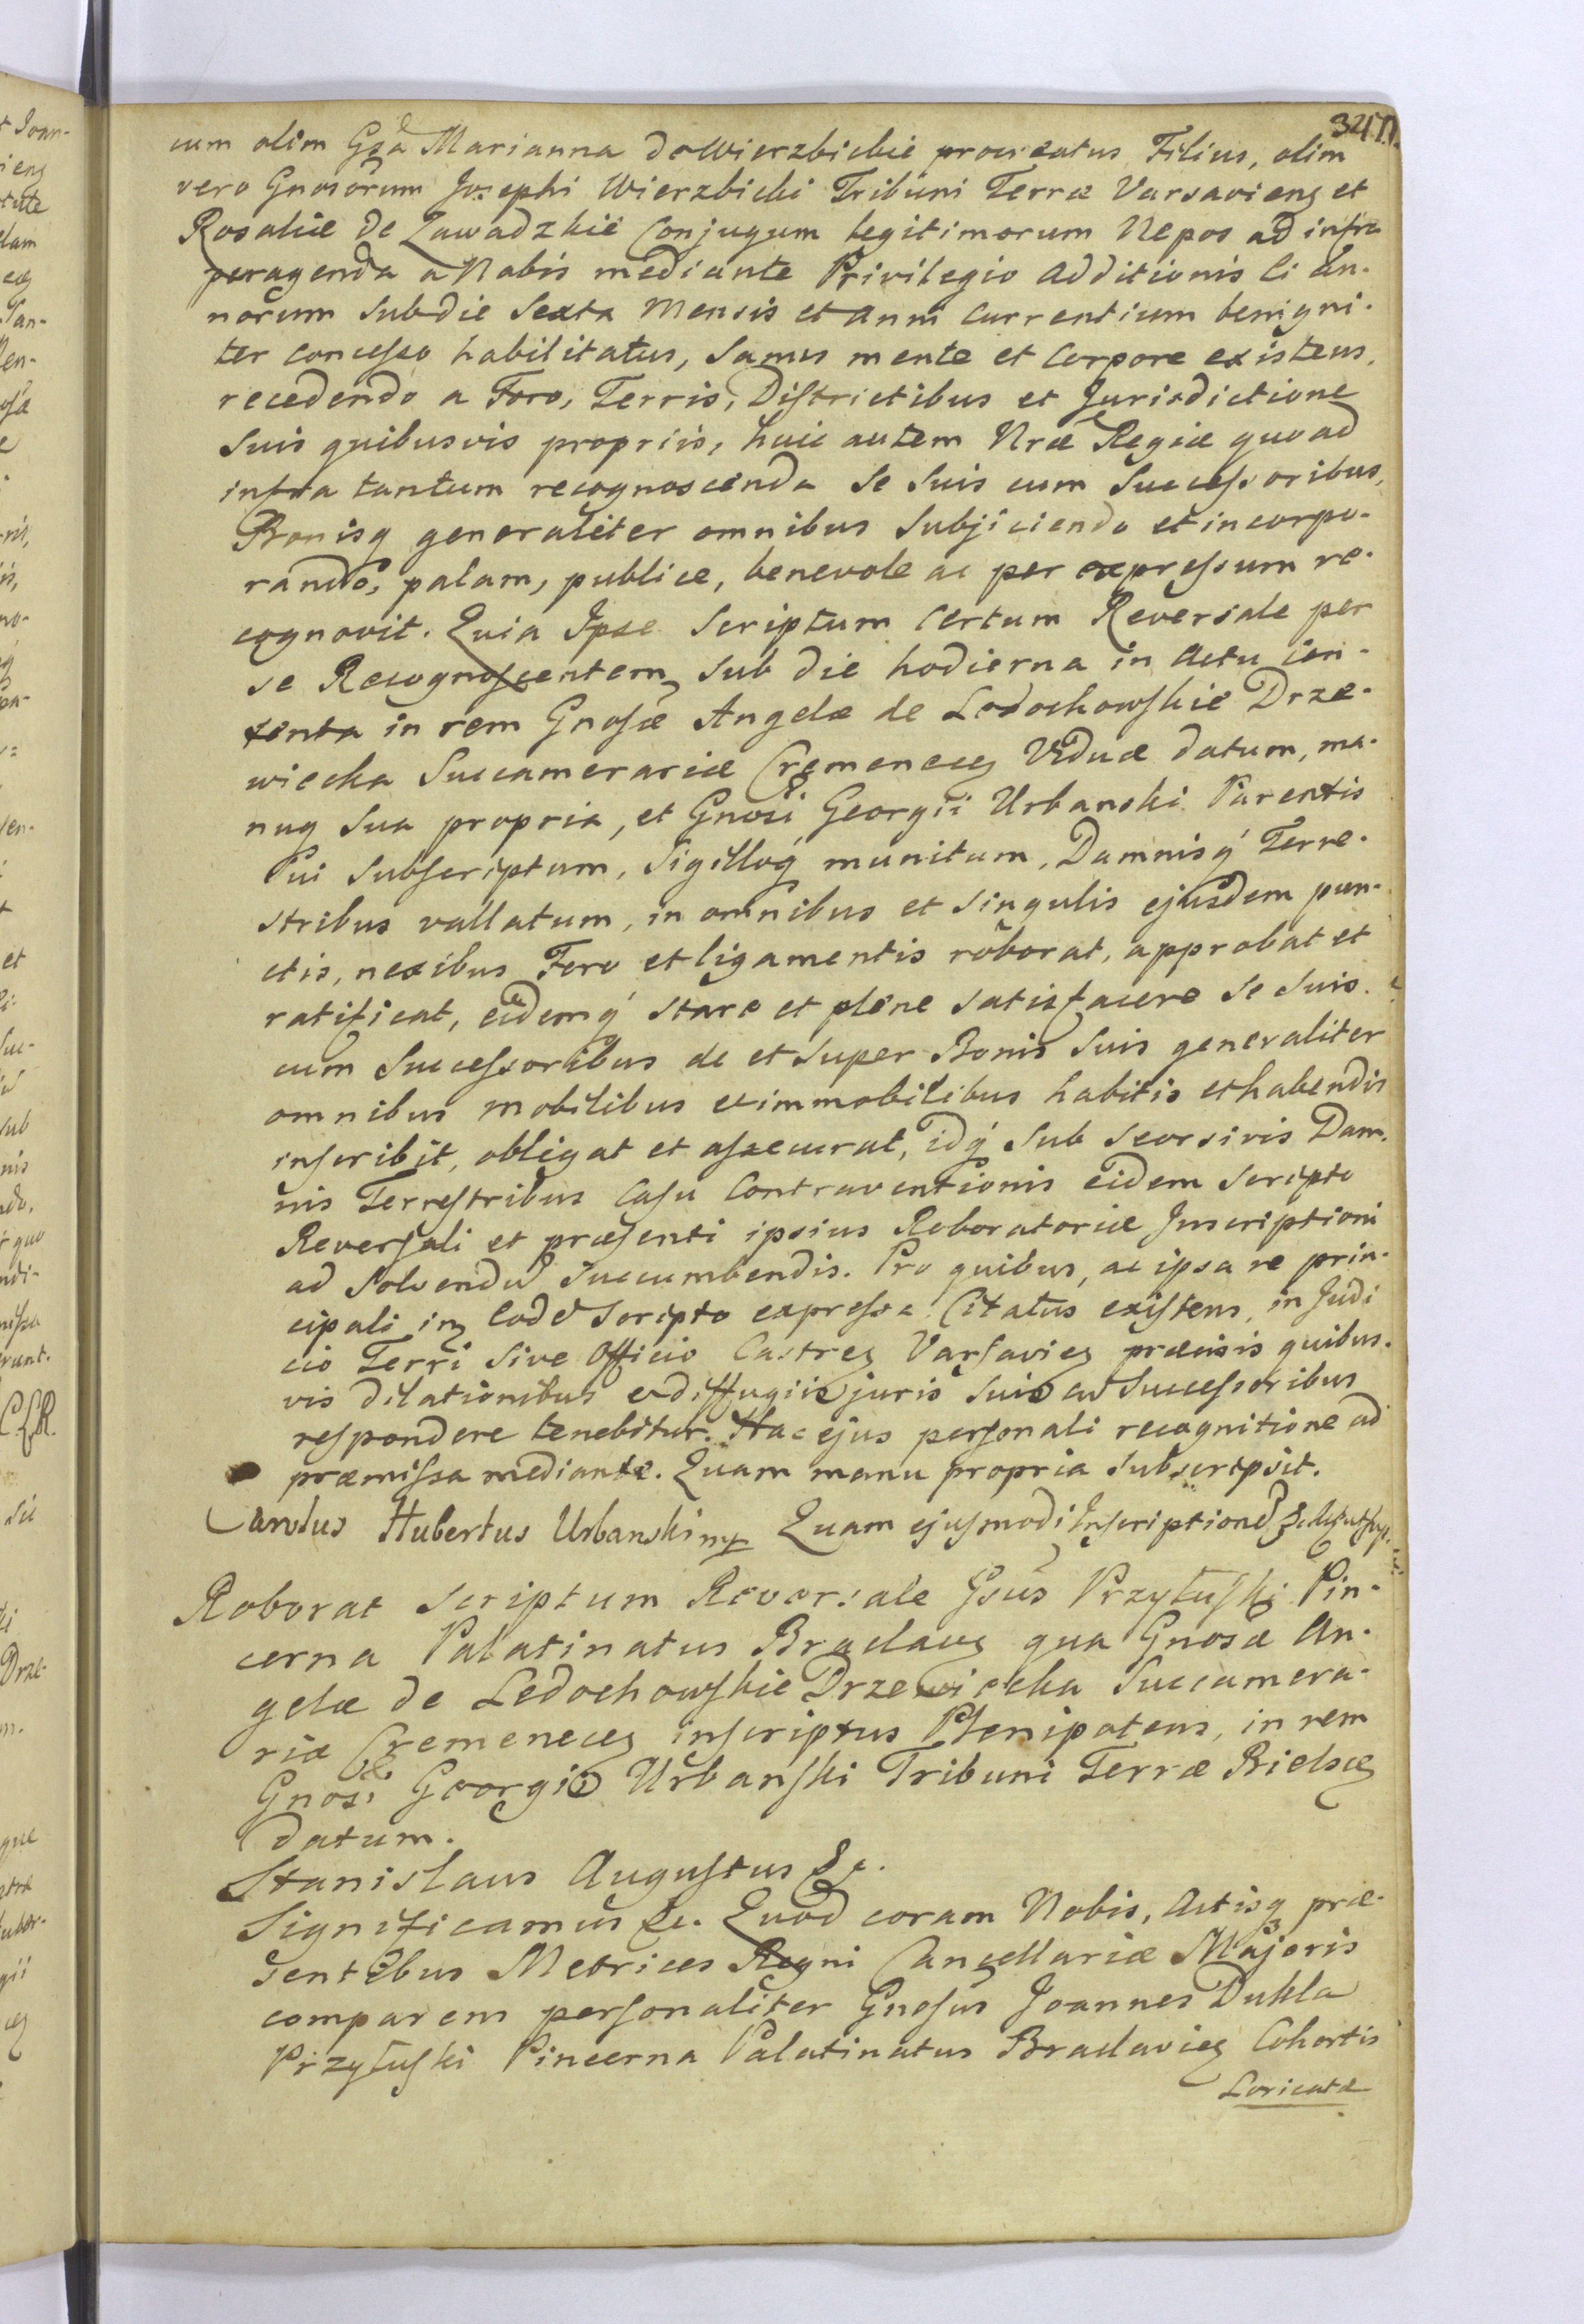 347.
cum olim Gsa Marianna de Wierzbickie procreatus Filius, olim
vero Gnosorum Josephi Wierzbicki Tribuni Terræ Varsavienz et
Rosaliæ de Zawadzkie Conjugum legitimorum Nepos ad infra
peragenda a Nobis mediante Privilegio Additionis li an-
norum sub die Sexta Mensis et anni Currentium benigni-
ter concesso habilitatus, Sanus mente et Corpore existens,
recedendo a Foro, Terris, Districtibus et Jurisdictione
Suis quibusvis propriis, huic autem Nræ Regiæ quoad
infra tantum recognoscenda Se Suis cum Successoribus,
Bonisq generaliter omnibus Subjiciendo et incorpo-
rando, palam, publice, benevole ac per expressum re-
cognovit. Quia Ipse Scriptum Certum Reversale per
se Recognoscentem Sub die hodierna in Actu con-
tenta in rem Gnosæ Angelæ de Ledochowskie Drze-
wiecka Succamerariæ Cremenecz Viduæ datum, ma-
nuq Sua propria, et Gnosi Georgii Urbanski Parentis
Sui Subscriptum, Sigilloq munitum, Damnisq Terre-
stribus vallatum, in omnibus et Singulis ejusdem pun-
ctis, nexibus Fero et ligamentis roborat, approbat et
ratificat, eidemq stare et plene satisfacere Se Suis
cum Successoribus de et Super Bonis Suis generaliter
omnibus mobilibus et immobilibus habitis et habendis
inscribit, obligat et assecurat, idq Sub Seorsivis Dam-
nis Terrestribus Casu Contraventionis eidem Scripto
Reversali et præsenti ipsius Roboratoriæ Inscriptioni
ad Solvendu Succumbendis. Pro quibus, ac ipsa re prin-
cipali in eode Scripto expressa Citatus existens, in Judi
cio Terri Sive Officio Castrez Varsaviez præcisis quibus-
vis dilationibus et diffugiis juris Suis cu Successoribus
respondere tenebitur. Hac ejus personali recognitione ad
præmissa mediante. Quam manu propria Subscripsit.
Carolus Hubertus Urbanski mp Quam ejusmodi Inscriptione
Roborat Scriptum Reversale Gsus Przyłuski Pin-
cerna Palatinatus Braclavz qua Gnosæ An-
gelæ de Ledochowskie Drzewiecka Succamera-
riæ Cremenecz inscriptus Plenipotens, in rem
Gnosi Georgii Urbanski Tribuni Terræ Bielscz
datum.
Stanislaus Augustus &c.
Significamus &c. Quod coram Nobis, Actisq præ-
sentibus Metrices Regni Cancellariæ Majoris
comparens personaliter Gnosus Joannes Dukla
Przyłuski Pincerna Palatinatus Braclaviez Cohortis
Loricatæ